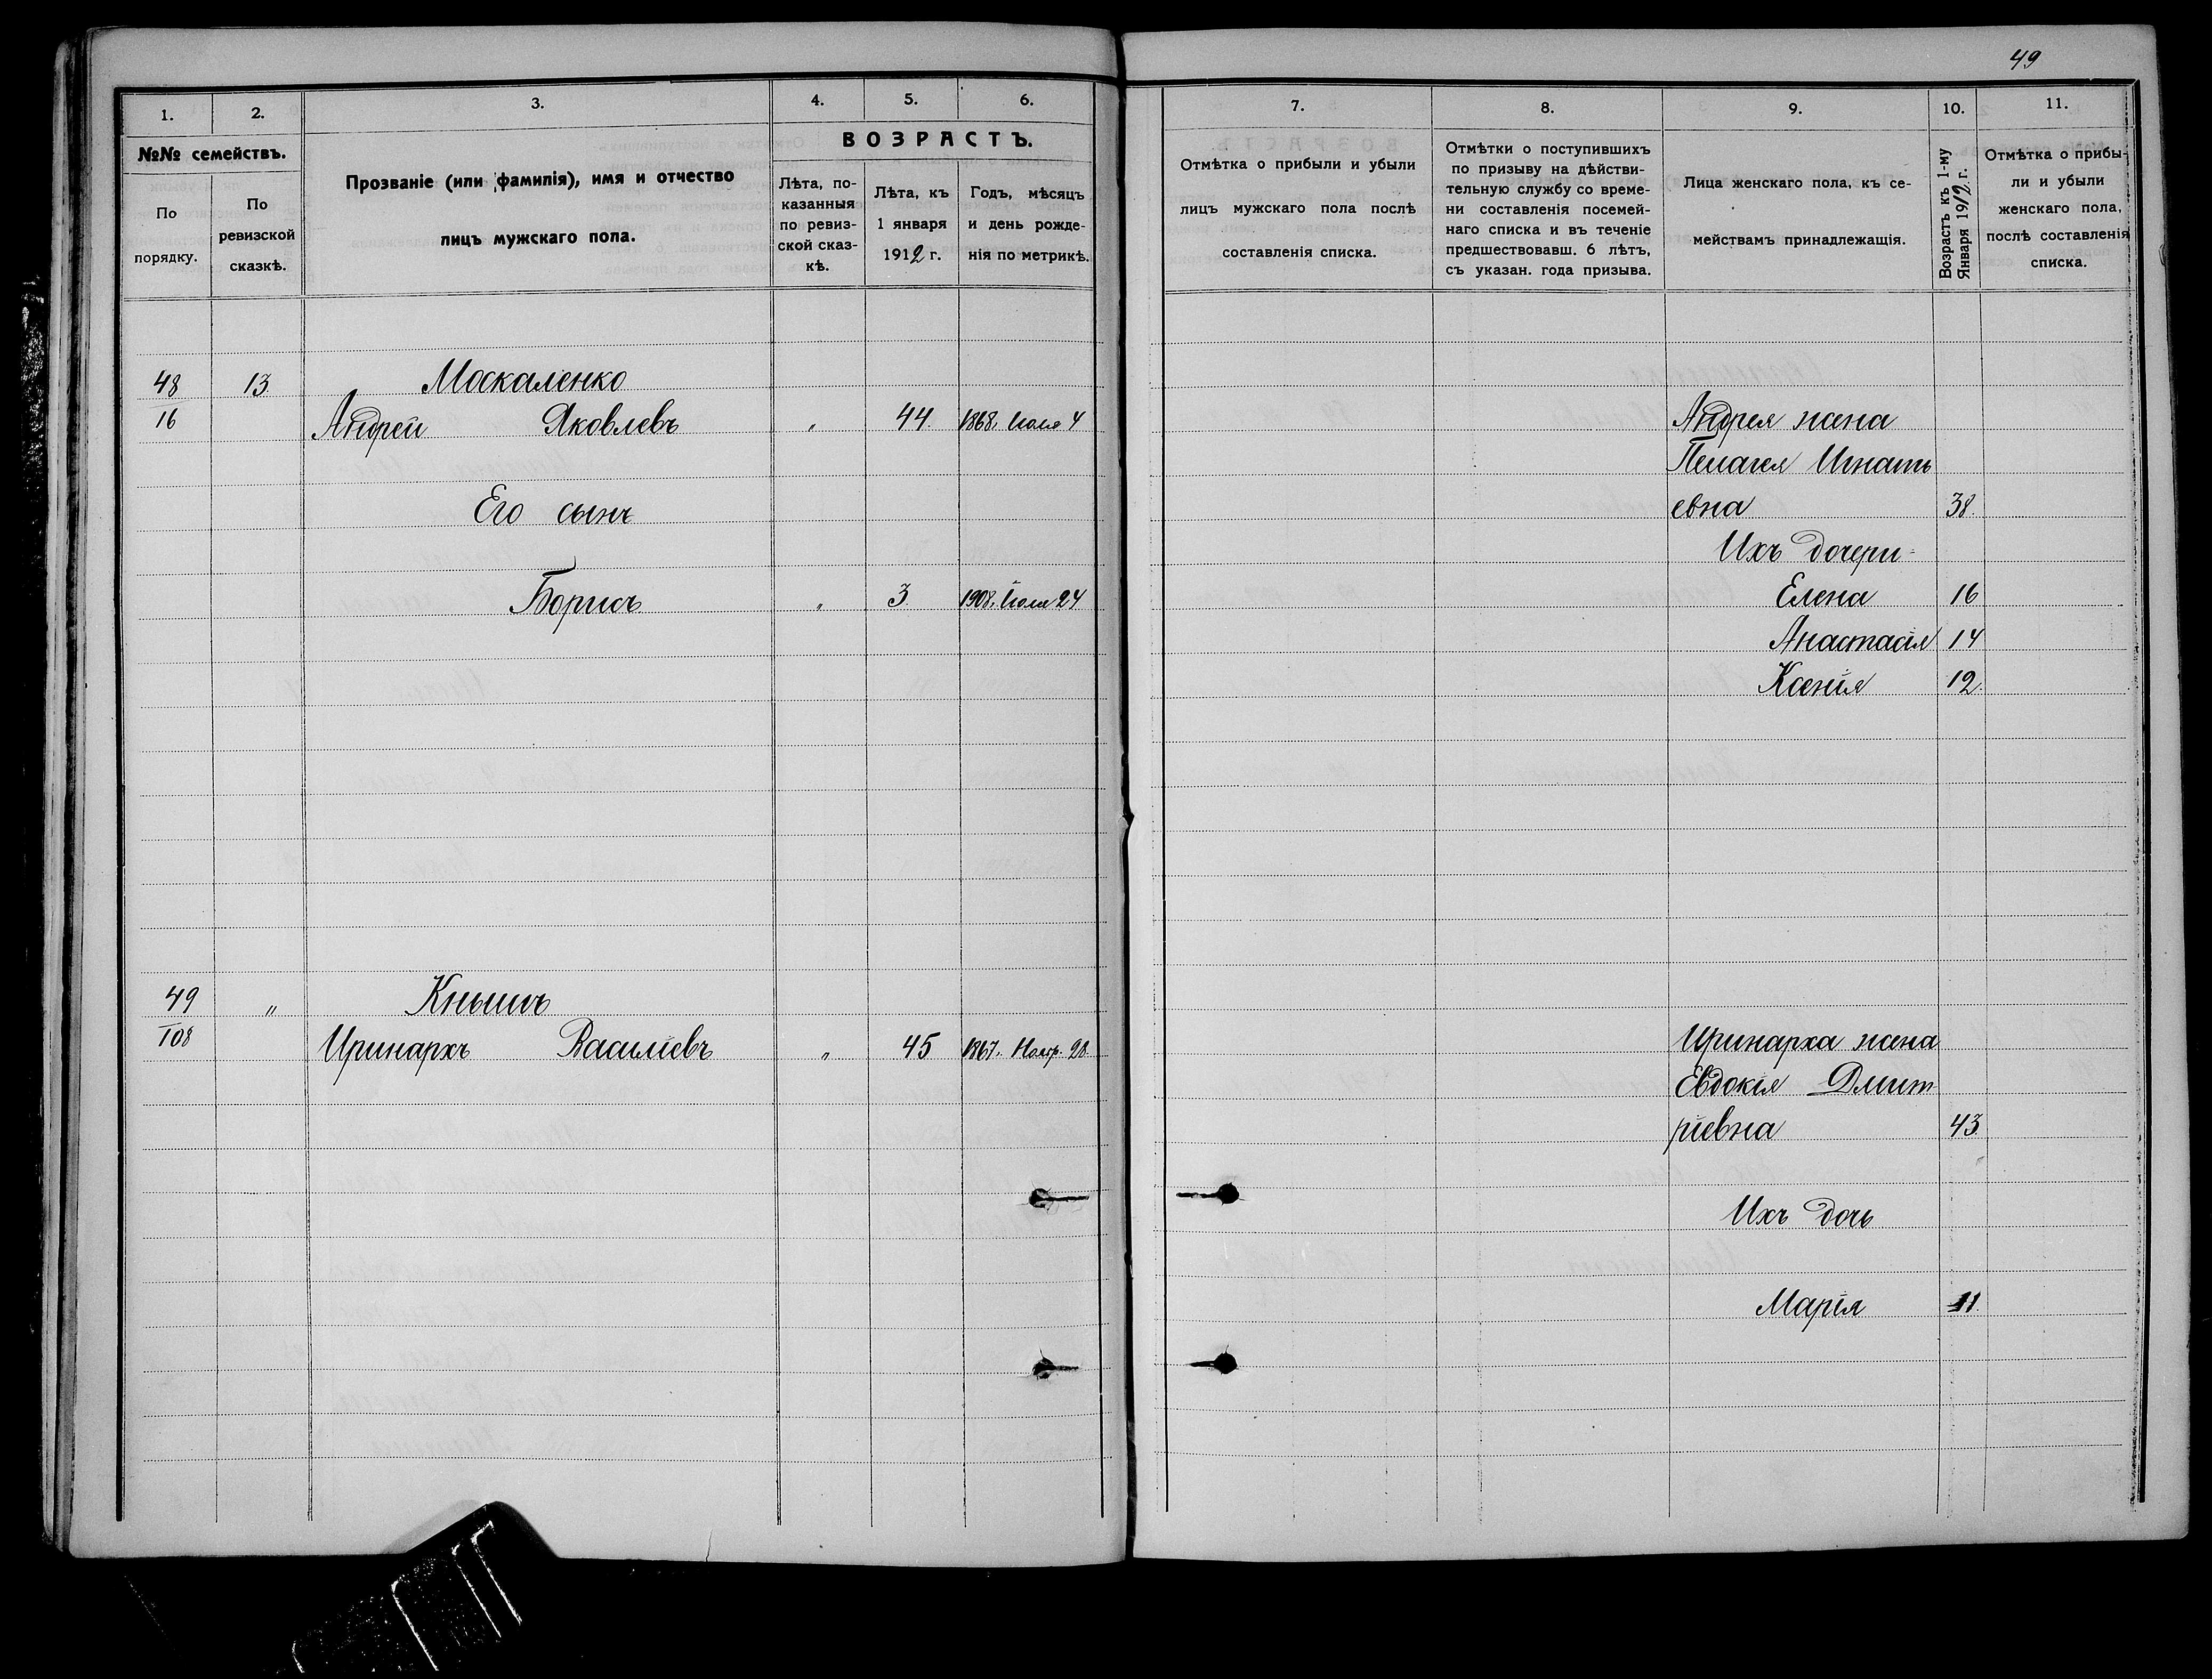 49
1.
2.
3.
4.
5.
6.
№№ семействъ.
По порядку.
По ревизской сказкѣ.
Прозваніе (или фамилія), имя и отчество
лицъ мужскаго пола.
ВОЗРАСТЪ.
Лѣта, по-
казанныя
по ревиз-
ской сказ-
кѣ.
Лѣта, къ
1 января
1912 г.
Годъ, мѣсяцъ
и день рожде-
нія по метрикѣ.
7.
8.
9.
10.
11.
Отмѣтка о прибыли и убыли
лицъ мужскаго пола послѣ
составленія списка.
Отмѣтки о поступившихъ
по призыву на дѣйстви-
тельную службу со време-
ни составленія посемей-
наго списка и въ теченіе
предшествовавш. 6 лѣтъ,
съ указан. года призыва.
Лица женскаго пола, къ се-
мействамъ принадлежащія.
Возрастъ къ 1-му
Января 1912 г.
Отмѣтка о прибы-
ли и убыли
женскаго пола,
послѣ составленія
списка.
48 13 Москаленко
16 Андрей Яковлевъ „ 44. 1868. Іюля 4
Его сынъ
Борисъ „ 3 1908. Іюля 24
49 „ Кнышъ
108 Иринархъ Василіевъ „ 45 1867. Ноябр. 28
Андрея жена
Пелагея Игнать
евна 38
Ихъ дочери-
Елена 16
Анастасія 14
Ксенія 12.
Иринарха жена
Евдокія Дмит-
ріевна 43
Ихъ дочь
Марія 11.